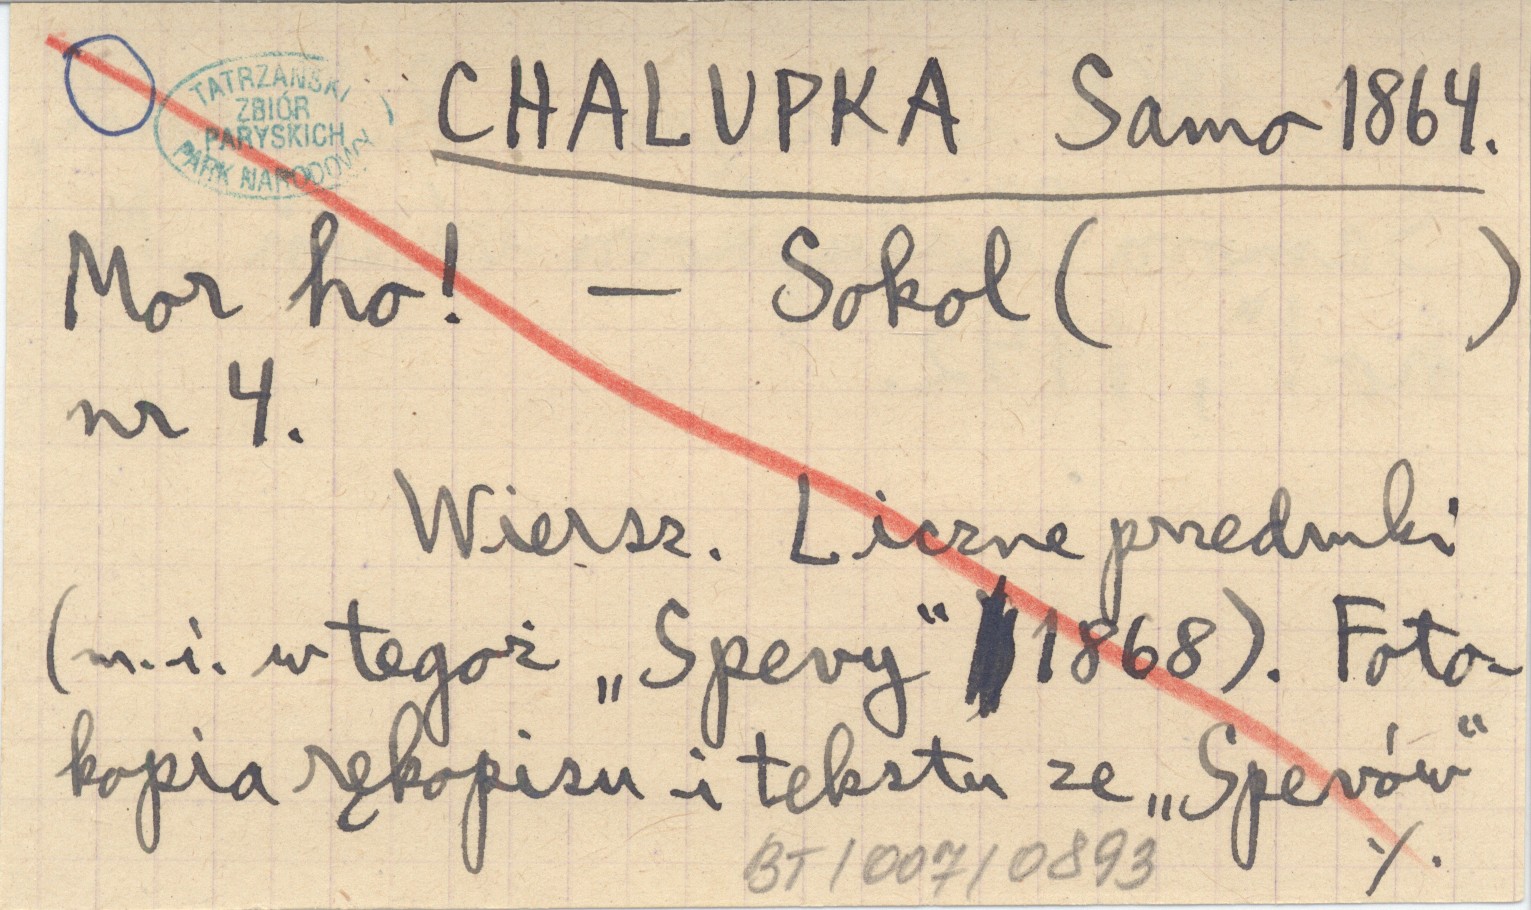 TATRZAŃSKI
ZBIÓR
PARYSKICH
PARK NARODOWY
CHALUPKA Samo 1864.
Mor ho! — Sokol ( )
nr 4.
Wiersz. Liczne przedruki
(m.i. w tegoż „Spevy" 1868). Foto-
kopia rękopisu i tekstu ze „Spevów"
BT/007/0893
./.